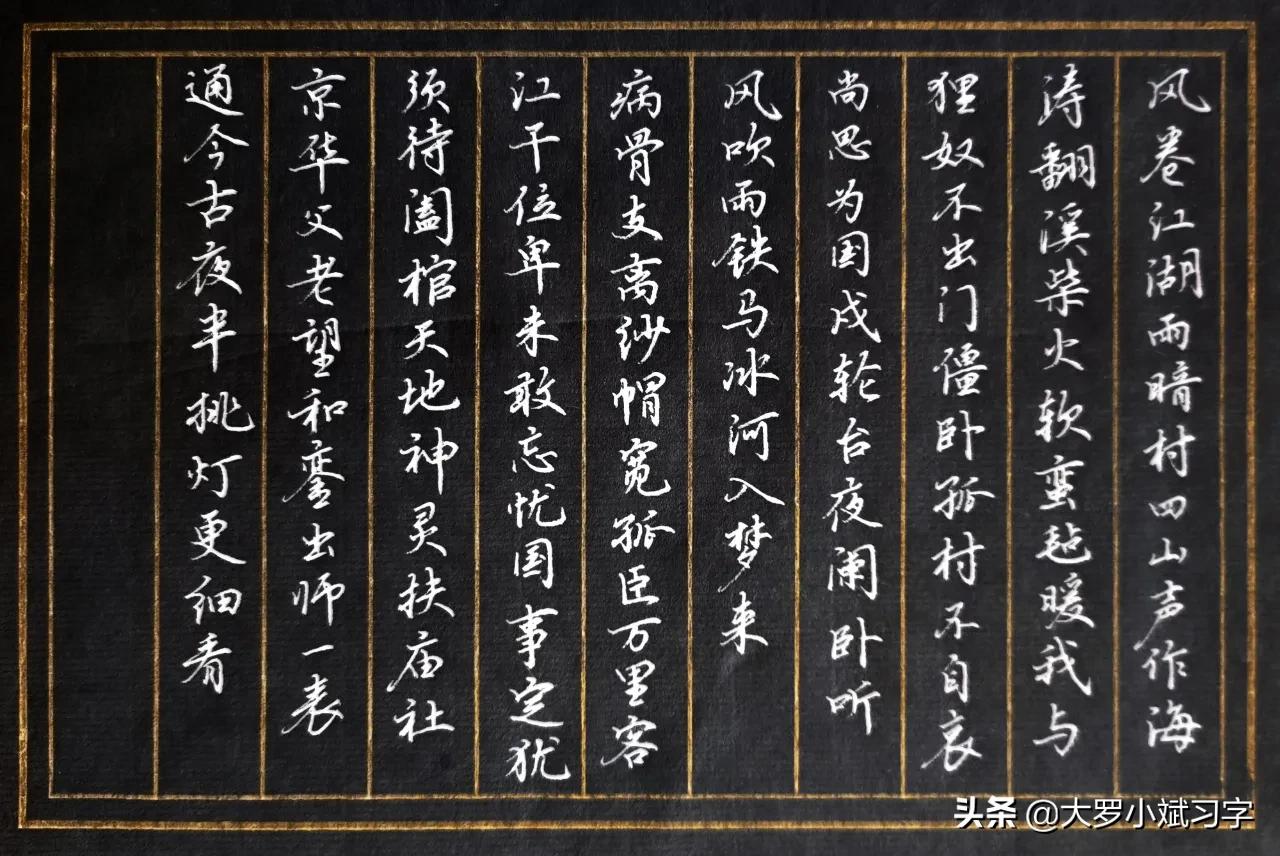 风卷江湖雨暗村四山声作海
涛翻溪柴火软蛮毡暖我与
狸奴不出门僵卧孤村不自哀
尚思为国戍轮台夜阑卧听
风吹雨铁马冰河入梦来
病骨支离纱帽宽孤臣万里客
江干位卑未敢忘忧国事定犹
须待阖棺天地神灵扶庙社
京华父老望和銮出师一表
通今古夜半挑灯更细看
头条 @大罗小斌习字